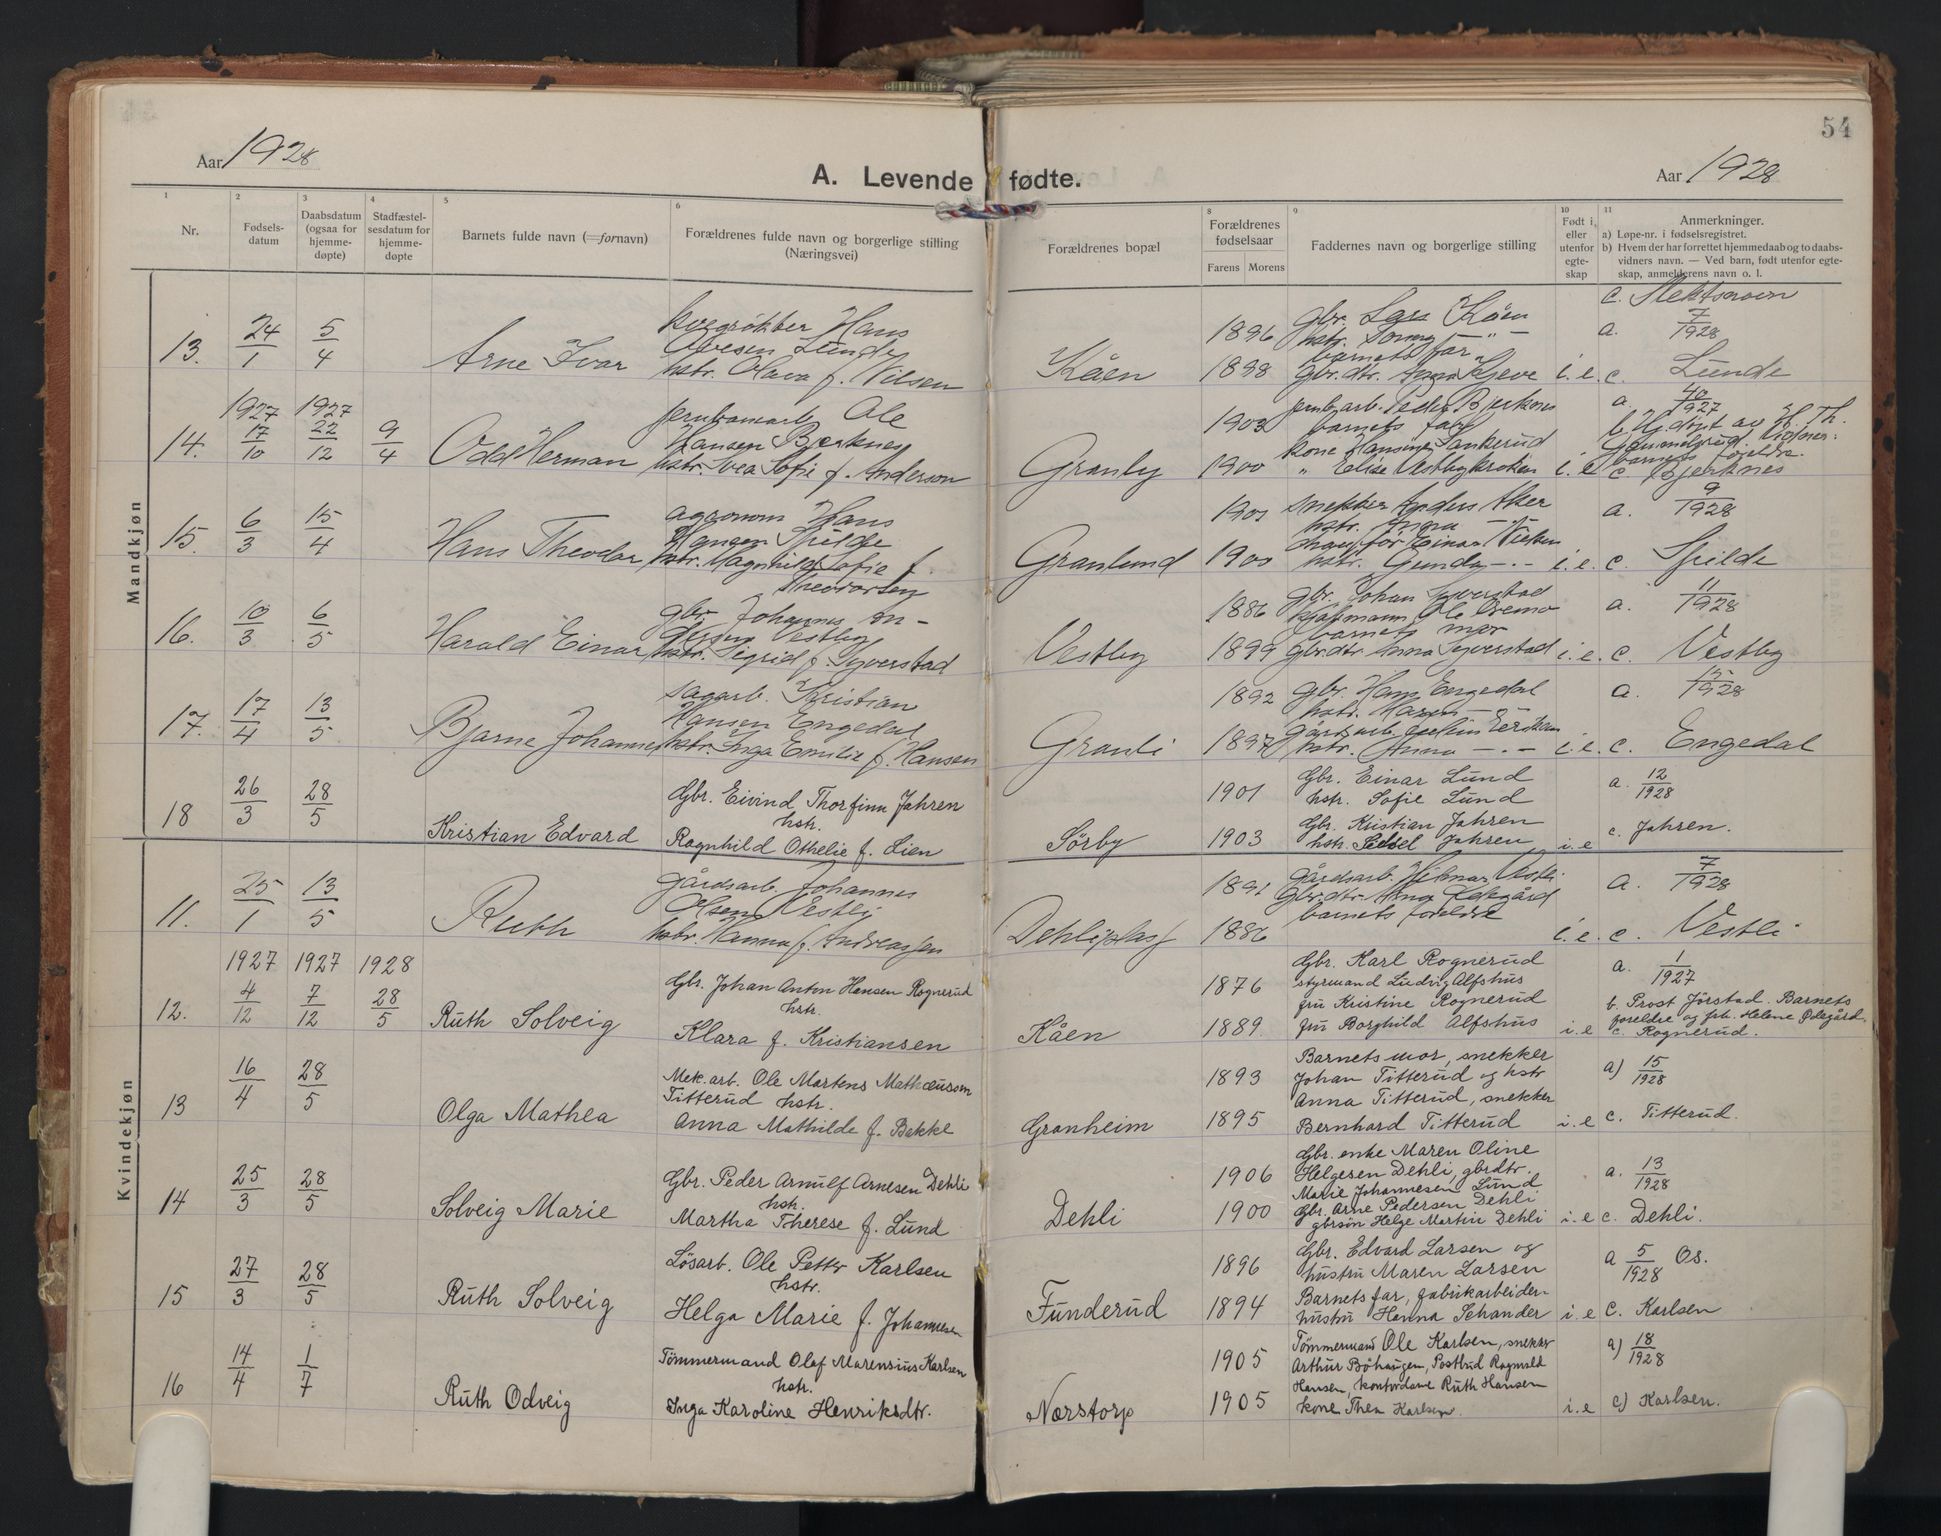 54
Aar 1928
A. Levende fødte.
Aar 1928
1 2 3 4 5 6 8 9 10 11
Nr.
Fødsels-
datum
Daabsdatum
(ogsaa for
hjemme-
døpte)
Stadfæstel-
sesdatum for
hjemme-
døpte
Barnets fulde navn (=fornavn)
Forældrenes fulde navn og borgerlige stilling
(Næringsvei)
Forældrenes bopæl
Forældrenes
fødselsaar
Farens Morens
Faddernes navn og borgerlige stilling
Født i,
eller
utenfor
egte-
skap
Anmerkninger.
a) Løpe-nr. i fødselsregistret.
b) Hvem der har forrettet hjemmedaab og to daabs-
vidners navn. — Ved barn, født utenfor egte-
skap, anmelderens navn o. l.
Mandkjøn
13. 24/1 5/4
Arne Ivar
Hans
Lunde
hstr. Olava f. Nilsen
Kåen
1896
1898
gbr. Lars Kåen
hstr.
barnets far
gbr.dtr.
i. e.
a. 7/1928
c. Lunde
14. 1927 17/10 1927 22/12 9/4
Odd Herman
Ole
Hansen Bjerknes
hstr. Svea Sofie f. Anderson
Granby
1903
1900
Peder Bjerknes
barnets far
kone
" Elise
i. e
a. 40/1927
barnets
c. Bjerknes
15. 6/3 15/4
Hans Theodor
agronom Hans
Hansen Spilde
hstr. Magnhild Sofie f.
Theodorsen
Granlund
1901
1900
snekker Anders Aker
hstr. Anna — " —
Einar
hstr. Gunda - " -
i. e.
a. 9/1928
c. Spilde
16. 10/3 6/5
Harald Einar
gbr. Johannes An-
dersen Vestby
hstr. Sigrid f. Syverstad
Vestby
1886
1899
gbr. Johan Syverstad
Ole
barnets mor
gbr.dtr. Anna Syverstad
i. e.
a. 11/1928
c. Vestby
17. 17/4 13/5
Bjarne Johannes
sagarb. Kristian
Hansen Engedal
hstr. Inga Emilie f. Hansen
Granli
1892
1897
gbr. Hans Engedal
hstr. Maren — " —
gårdsarb.
hstr. Anna - " -
i. e.
a. 1928
c. Engedal
18 26/3 28/5
Kristian Edvard
Gbr. Eivind Thorfinn Jahren
hstr.
Ragnhild Othelie f. Lien
Sörby
1901
1903
Gbr. Einar Lund
hstr. Sofie Lund
Gbr. Kristian Jahren
hstr. Jahren
i. e
a. 12/1928
c. Jahren.
Kvindekjøn
11. 25/1 13/5
Ruth
gårdsarb. Johannes
Olsen Vestli
hstr. Hanna f. Andreassen
Dehliplass
1892
1886
gårdsarb. Vestli
Gbr.dtr. Ødegård
barnets foreldre
i. e.
a. 7/1928
c. Vestli
12. 1927 4/12 1927 7/12 1928 28/5
Ruth Solveig
Gbr. Johan Anton Hansen Rognerud
hstr.
Klara f. Kristiansen
Kåen
1876
1889
Gbr. Karl Rognerud
styrmand Ludvig Alfshus
fru Kristine Rognerud
fru Borghild Alfshus
i. e
a. 1/1927
b. Prost Jörstad. Barnets
foreldre og frk. Helene Ødegård
c. Rognerud.
13 16/4 28/5
Olga Mathea
Mek. arb. Ole Martens Mathæusson
Titterud hstr.
Anna Mathilde f. Bakke
Granheim
1893
1895
Barnets mor, snekker
Johan Titterud og hstr
Anna Titterud, snekker
Bernhard Titterud
i. e
a) 15/1928
c. Titterud.
14 25/3 28/5
Solveig Marie
Gbr. Peder Arnulf Arnesen Dehli
hstr.
Martha Therese f. Lund
Dehli
1906
1900
Gbr. enke Maren Oline
Helgesen Dehli, gbrdtr.
Marie Johannesen Lund
Gbr. Arne Pedersen Dehli
gbrsön Helge Martin Dehli
i. e
a. 13/1928
c. Dehli.
15 27/3 28/5
Ruth Solveig
Lösarb. Ole Petter Karlsen
hstr.
Helga Marie f. Johannesen
Funderud
1896
1894
Gbr. Edvard Larsen og
hustru Maren Larsen
Barnets far, fabrikarbeider-
hustru Hanna Schander
i. e
a 5/1928 Os.
c. Karlsen
16 14/4 1/7
Ruth Odveig
Tömmermand Olaf Marensius Karlsen
hstr.
Inga Karoline Henriksdtr.
Nærstorp
1905
1905
Tömmermand Ole Karlsen, snekker
Arthur Böhaugen, Postbud Ragnvald
Hansen, kontordame Ruth Hansen
kone Thea Karlsen.
i. e
a) 18/1928
c) Karlsen.